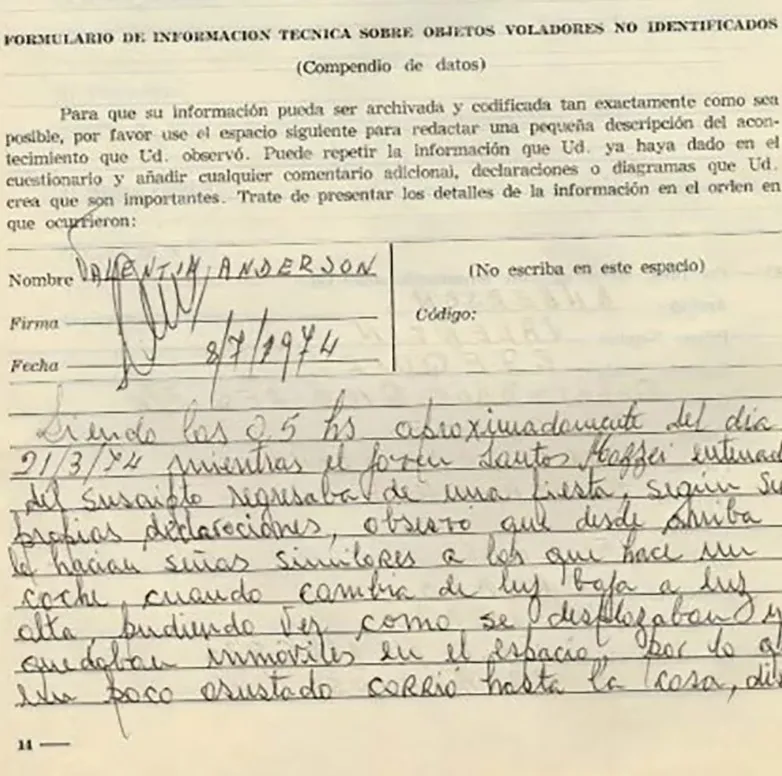 FORMULARIO DE INFORMACION TECNICA SOBRE OBJETOS VOLADORES NO IDENTIFICADOS
(Compendio de datos)
Para que su información pueda ser archivada y codificada tan exactamente como sea
posible, por favor use el espacio siguiente para redactar una pequeña descripción del acon-
tecimiento que Ud. observó. Puede repetir la información que Ud. ya haya dado en el
cuestionario y añadir cualquier comentario adicional, declaraciones o diagramas que Ud.
crea que son importantes. Trate de presentar los detalles de la información en el orden en
que ocurrieron:
Nombre VALENTIN ANDERSON
(No escriba en este espacio)
Firma
Código:
Fecha 8/7/1974
Siendo las 0,5 hs aproximadamente del dia
21/3/74 mientras el joven Santos entenad
del suscripto regresaba de una fiesta, según su
propias declaraciones, observó que desde arriba
le hacian señas similares a las que hace un
coche, cuando cambia de luz baja a luz
alta, pudiendo ver como se desplazaban y
quedaban inmóviles en el espacio, por lo q
un poco asustado CORRIÓ hasta la casa, di
14 —